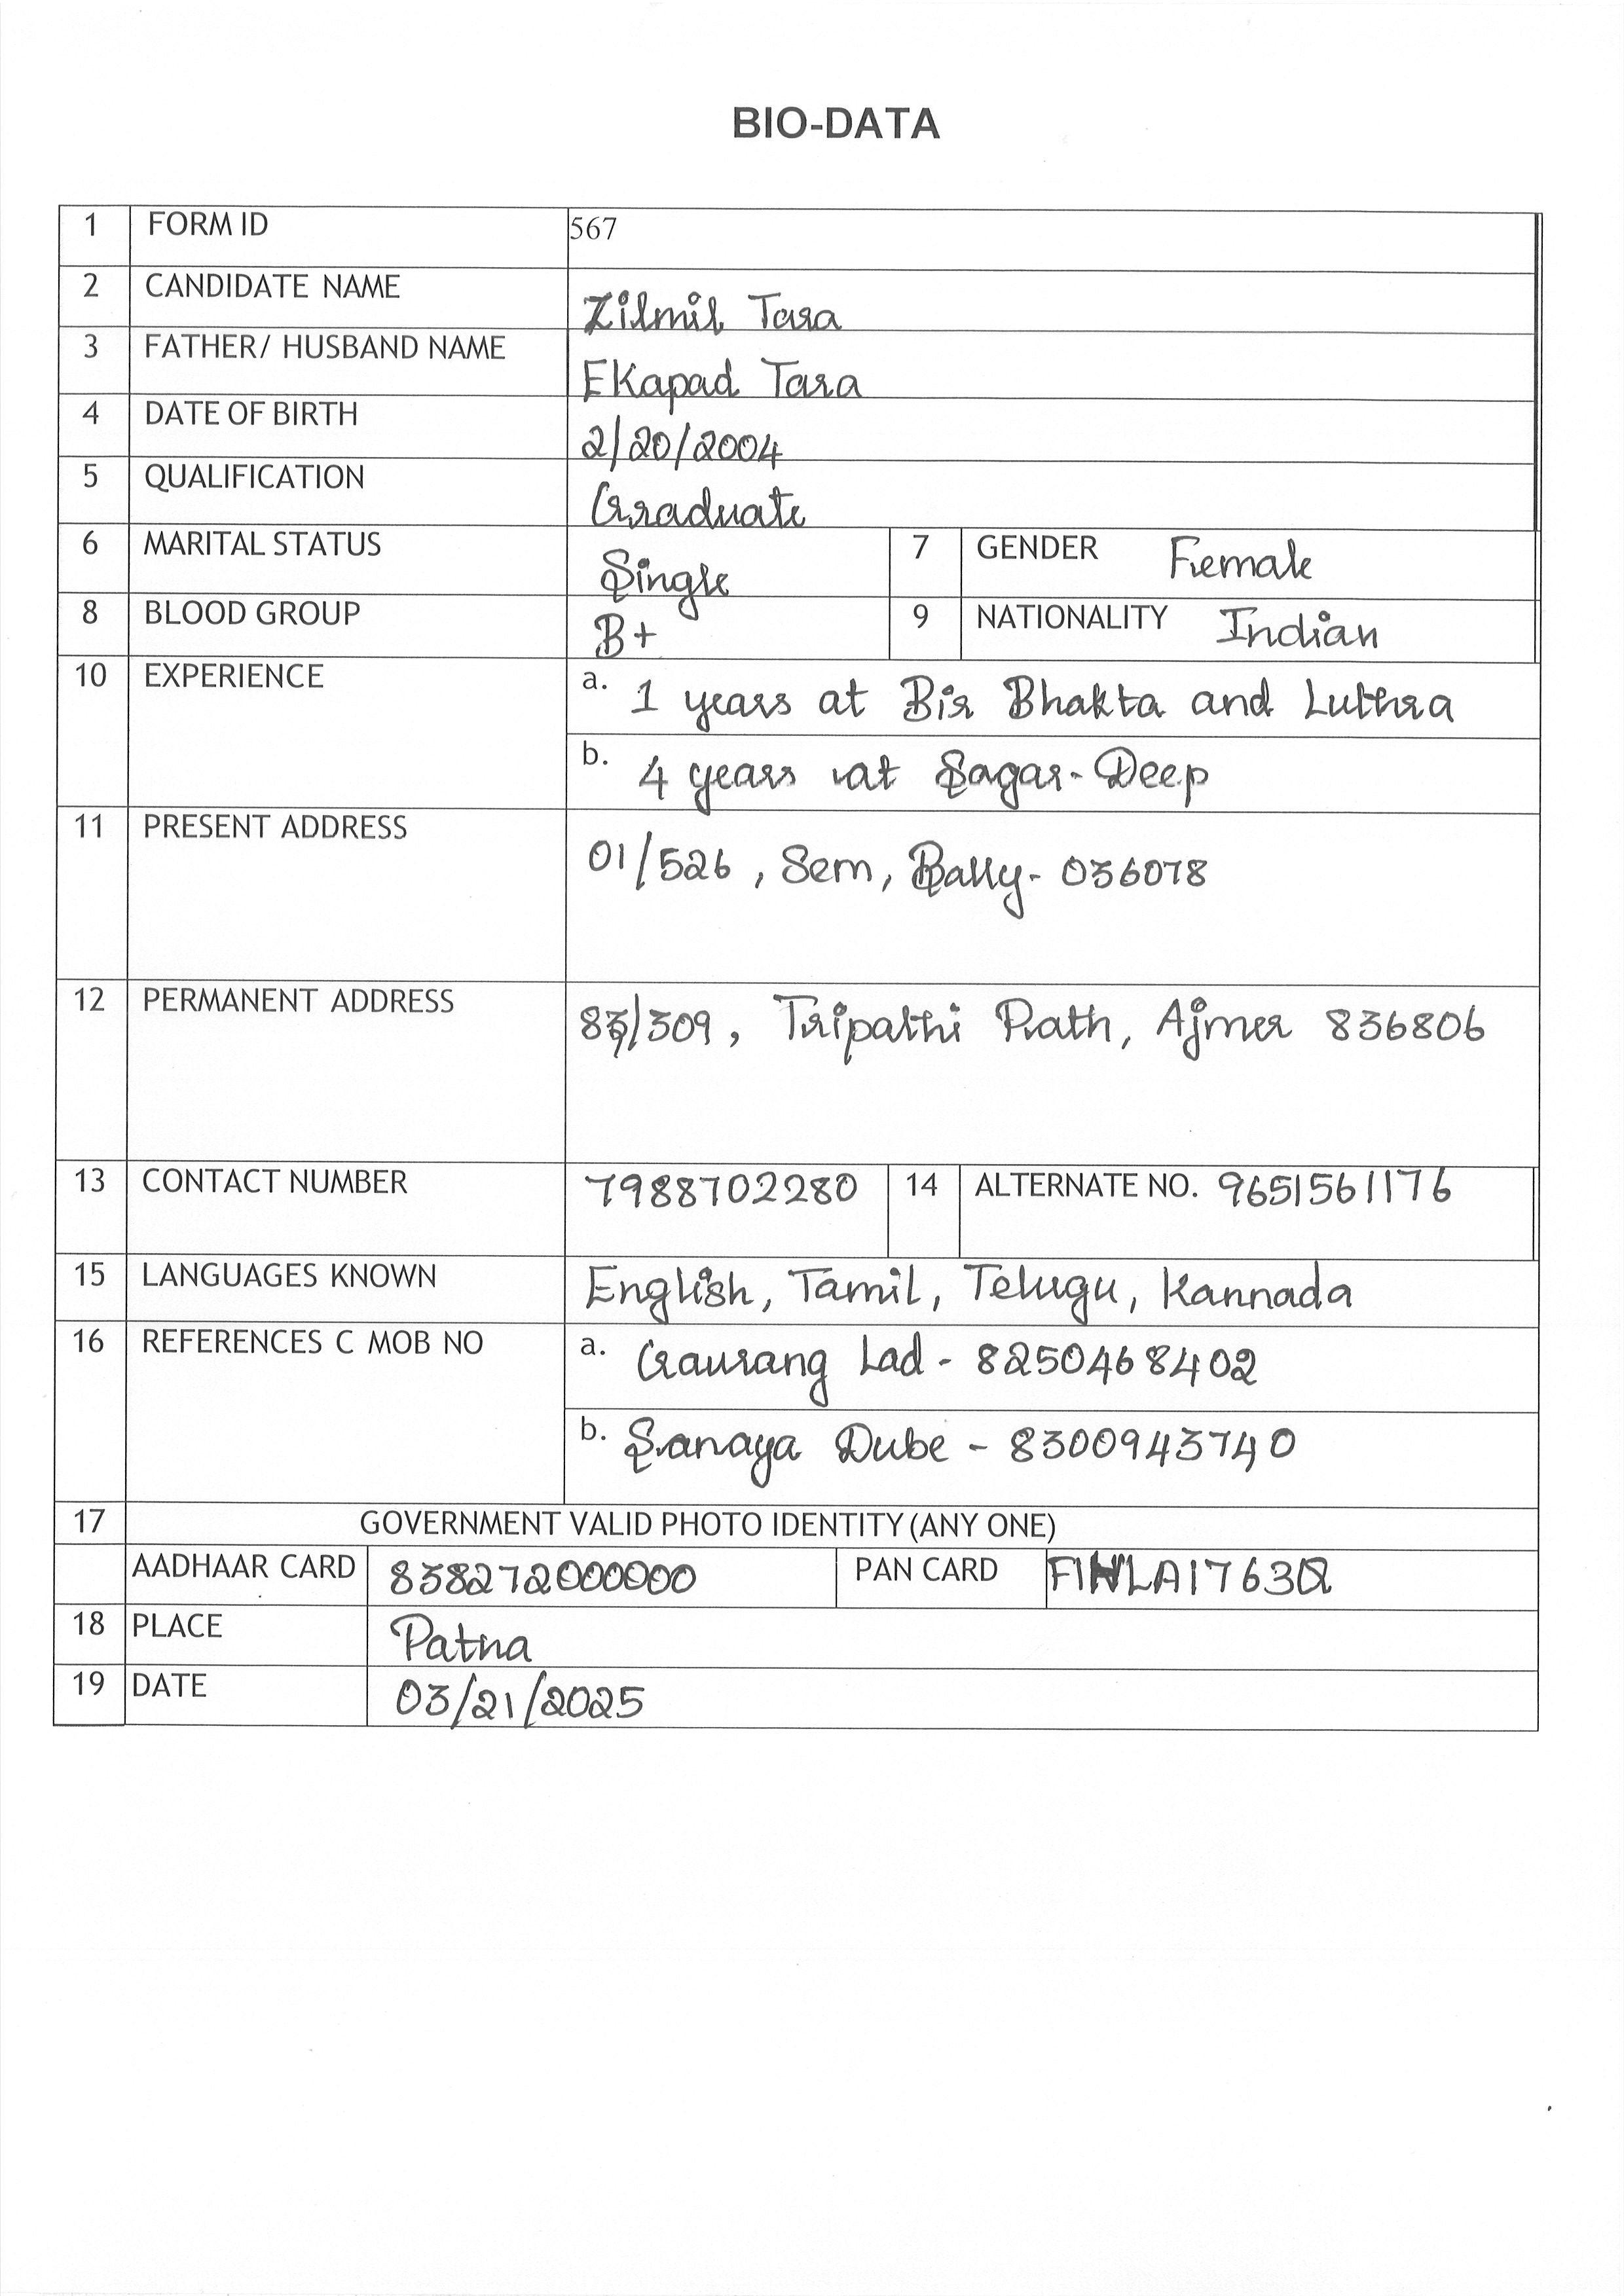 BIO-DATA
1 FORM ID 567
2 CANDIDATE NAME Zilmil Tara
3 FATHER/ HUSBAND NAME Ekapad Tara
4 DATE OF BIRTH 2/20/2004
5 QUALIFICATION Graduate
6 MARITAL STATUS Single 7 GENDER Female
8 BLOOD GROUP B+ 9 NATIONALITY Indian
10 EXPERIENCE a. 1 years at Bir Bhakta and Luthra
b. 4 years at Sagar-Deep
11 PRESENT ADDRESS 01/526, Sem, Bally- 036078
12 PERMANENT ADDRESS 83/309, Tripathi Path, Ajmer 836806
13 CONTACT NUMBER 7988702280 14 ALTERNATE NO. 9651561176
15 LANGUAGES KNOWN English, Tamil, Telugu, Kannada
16 REFERENCES C MOB NO a. Gaurang Lad - 8250468402
b. Sanaya Dube - 8300943740
17 GOVERNMENT VALID PHOTO IDENTITY (ANY ONE)
AADHAAR CARD 838272000000 PAN CARD
18 PLACE Patna
19 DATE 03/21/2025